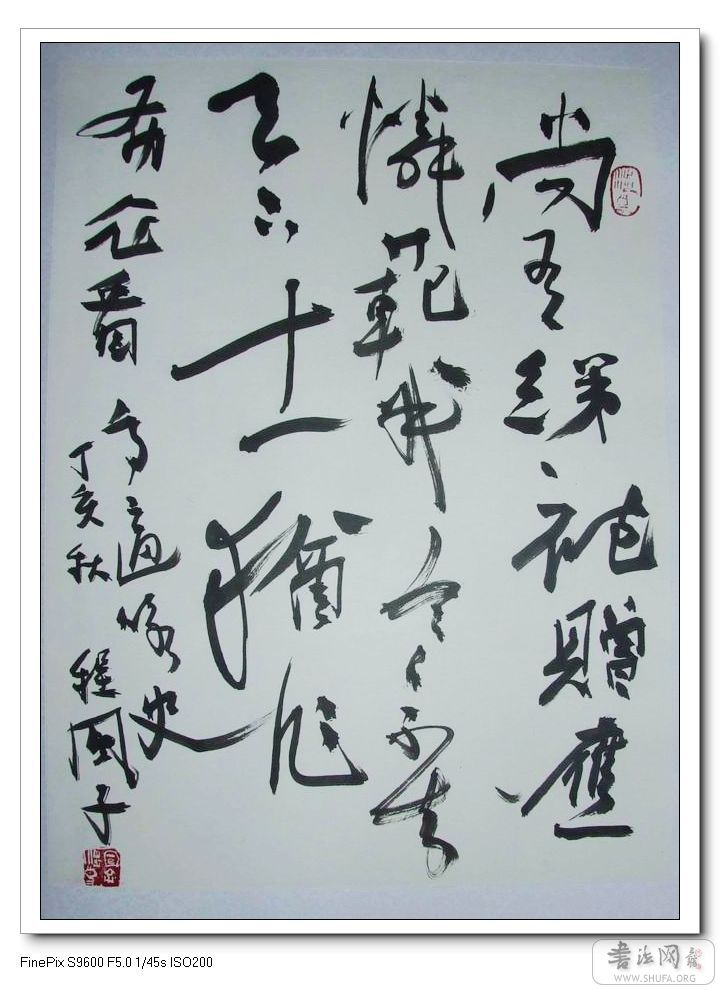 尚有綈袍贈應
憐範叔寒不知
天下士猶作
布衣看 高適咏史
丁亥秋 程風子
FinePix S9600 F5.0 1/45s ISO200
书法网
WWW.SHUFA.ORG